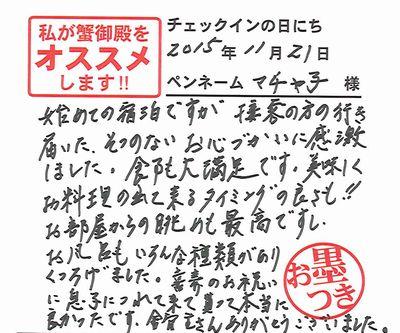 私が蟹御殿を
オススメ
します!!
チェックインの日にち
2015年 11月 21日
ペンネーム マチャ子 様
始めての宿泊ですが 接客の方の行き
届いた、そつのない お心づかいに感激
しました。食事も大満足です。美味しく
お料理の出て来るタイミングの良さも!!
お部屋からの眺めも最高ですし
お風呂もいろんな種類があり
くつろげました。喜寿のお祝い
に息子につれて来て貰って本当に
良かったです。 さんありがとうございました。
お墨つき